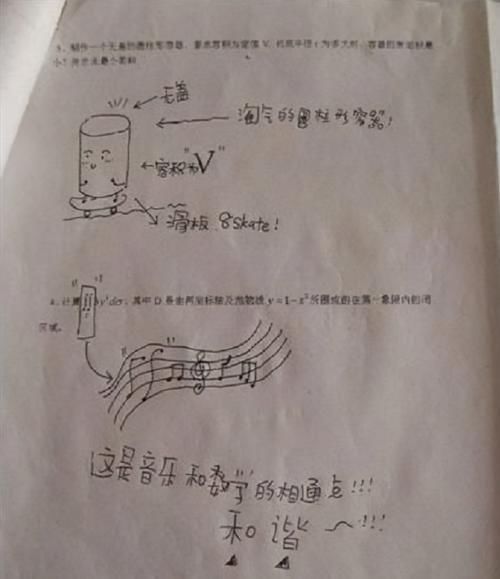 3、制作一个无盖的圆柱形容器，要求容积为定值 V，问底半径 r 为多大时，容器的表面积最
小？并求出最小面积
无盖
淘气的圆柱形容器！
容积为"V"
滑板 skate！
4、计算 其中 D 是由两坐标轴及抛物线 y = 1 - x² 所围成的在第一象限内的闭
区域。
这是音乐和数学的相通点!!!
和谐～!!!